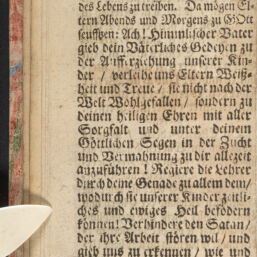 des Lebens zu treiben. Da mögen El-
tern Abends und Morgens zu GOtt
seufftzen: Ach! Himmlischer Vater
gieb dein Väterliches Gedeyen zu
der Aufferziehung unserer Kin-
der / verleihe uns Eltern Weiß-
heit und Treue / sie nicht nach der
Welt Wohlgefallen / sondern zu
deinen heiligen Ehren mit aller
Sorgfalt und unter deinem
Göttlichen Segen in der Zucht
und Vermahnung zu dir allezeit
anzuführen! Regiere die Lehrer
durch deine Genade zu allem dem /
wodurch sie unserer Kinder zeitli-
ches und ewiges Heil befördern
können! Verhindere den Satan /
der ihre Arbeit stören wil / und
gieb uns zu erkennen / wie und